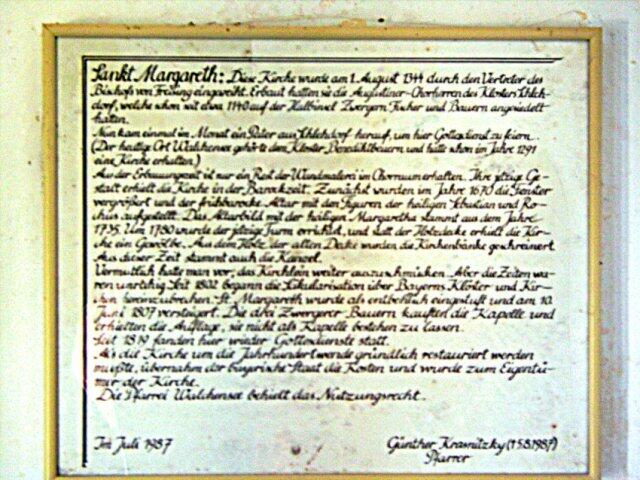 Sankt Margareth: Diese Kirche wurde am 1. August 1344 durch den Vertreter des
Bischofs von Freising eingeweiht. Erbaut hatten sie die Augustiner-Chorherren des Klosters Schleh-
dorf, welche schon seit etwa 1140 auf der Halbinsel Zwergern Fischer und Bauern angesiedelt
hatten.
Nun kam einmal im Monat ein Pater aus Schlehdorf herauf, um hier Gottesdienst zu feiern.
(Der heutige Ort Walchensee gehörte dem Kloster Benediktbeuern und hatte schon im Jahre 1291
eine Kirche erhalten.)
Aus der Erbauungszeit ist nur ein Rest der Wandmalerei im Chorraum erhalten. Ihre jetzige Ge-
stalt erhielt die Kirche in der Barockzeit. Zunächst wurden im Jahre 1670 die Fenster
vergrößert und der frühbarocke Altar mit den Figuren der heiligen Sebastian und Ro-
chus aufgestellt. Das Altarbild mit der heiligen Margaretha stammt aus dem Jahre
1735. Um 1780 wurde der jetzige Turm errichtet, und statt der Holzdecke erhielt die Kir-
che ein Gewölbe. Aus dem Holz der alten Decke wurden die Kirchenbänke geschreinert.
Aus dieser Zeit stammt auch die Kanzel.
Vermutlich hatte man vor, das Kirchlein weiter auszuschmücken. Aber die Zeiten wa-
ren unruhig. Seit 1802 begann die Säkularisation über Bayerns Klöster und Kir-
chen hereinzubrechen. St. Margareth wurde als entbehrlich eingestuft und am 10.
Juni 1807 versteigert. Die drei Zwergerer Bauern kauften die Kapelle und
erhielten die Auflage, sie nicht als Kapelle bestehen zu lassen.
Seit 1819 fanden hier wieder Gottesdienste statt.
Als die Kirche um die Jahrhundertwende gründlich restauriert werden
mußte, übernahm der bayerische Staat die Kosten und wurde zum Eigentü-
mer der Kirche.
Die Pfarrei Walchensee behielt das Nutzungsrecht.
Im Juli 1987
Günther Krasnitzky (†5.8.1987)
Pfarrer